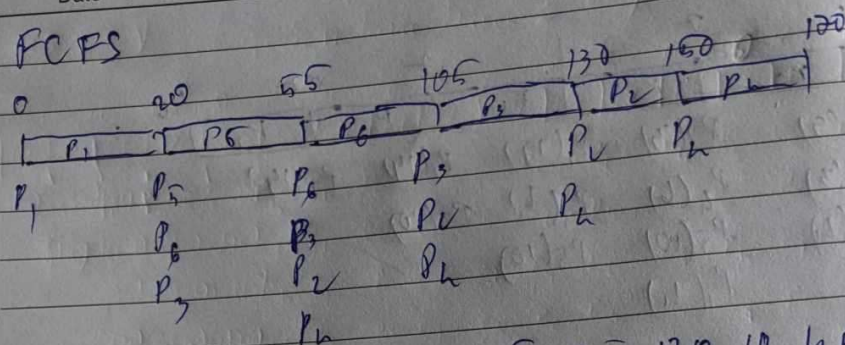 FCFS
0 20 55 105 130 150 170
P1 P5 P6 P3 P2 P4
P1 P5 P6 P3 P2 P4
P6 P3 P2 P4
P3 P2 P4
P4